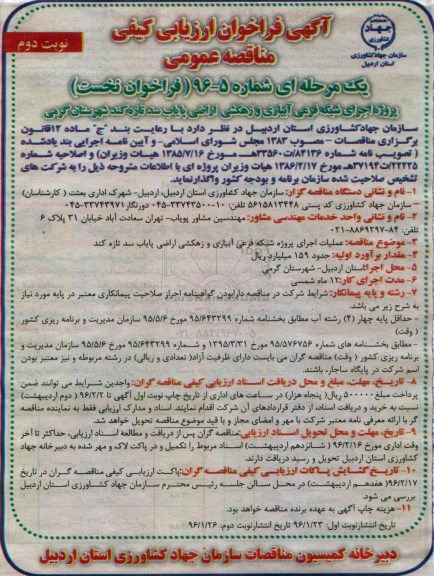 آگهی فراخوان ارزیابی کیفی
مناقصه عمومی
نوبت دوم
جهاد
کشاورزی
سازمان جهاد کشاورزی
استان اردبیل
یک مرحله ای شماره ۵-۹۶ (فراخوان نخست)
پروژه اجرای شبکه فرعی آبیاری و زهکشی اراضی پایاب سد تازه کند شهرستان گرمی
سازمان جهادکشاورزی استان اردبیل در نظر دارد با رعایت بند "ج" ماده ۱۲قانون
برگزاری مناقصات - مصوب ۱۳۸۳ مجلس شورای اسلامی- و آیین نامه اجرایی بند یادشده
(تصویب نامه شماره ۸۴۱۳۶/ت۳۳۵۶۰هـ مورخ ۱۳۸۵/۷/۱۶ هیات وزیران) و اصلاحیه شماره
۲۲۲۲۵/ت۳۷۱۹۳هـ مورخ ۱۳۸۶/۲/۱۷ هیات وزیران پروژه ای با اطلاعات مشروحه ذیل را به شرکت های
تشخیص صلاحیت شده سازمان برنامه و بودجه کشور واگذارنماید.
۱- نام و نشانی دستگاه مناقصه گزار: سازمان جهاد کشاورزی استان اردبیل، اردبیل- شهرک اداری بعثت (کارشناسان)
- سازمان جهاد کشاورزی کد پستی ۵۶۱۵۸۱۳۴۴۸ تلفن: ۱۰-۳۳۷۴۳۵۰۰-۰۴۵ دورنگار ۳۳۷۴۳۹۷۱-۰۴۵
۲- نام و نشانی واحد خدمات مهندسی مشاور: مهندسین مشاور پویاب- تهران سعادت آباد خیابان ۳۱ پلاک ۶
تلفن: ۸۴-۸۸۶۹۲۹۷-۰۲۱
۳- موضوع مناقصه: عملیات اجرای پروژه شبکه فرعی آبیاری و زهکشی اراضی پایاب سد تازه کند
۴- مقدار برآورد اولیه: حدود ۱۵۹ میلیارد ریال
۵- محل اجرا: استان اردبیل- شهرستان گرمی
۶- مدت اجرای کار: ۱۲ ماه شمسی
۷- رشته و پایه پیمانکار: شرایط شرکت در مناقصه دارابودن گواهینامه احراز صلاحیت پیمانکاری معتبر در پایه مورد نیاز
به شرح زیر می باشد.
- حداقل پایه چهار (۴) رشته آب مطابق بخشنامه شماره ۹۵/۶۴۳۲۹۹ مورخ ۹۵/۵/۶ سازمان مدیریت و برنامه ریزی کشور
(وقت)
- مطابق بخشنامه های شماره ۹۵/۵۷۶۷۵۶ مورخ ۱۳۹۵/۳/۳۱ و شماره ۹۵/۶۴۳۲۹۹ مورخ ۹۵/۵/۶ سازمان مدیریت و
برنامه ریزی کشور (وقت) مناقصه گران می بایست دارای ظرفیت آزاد( تعدادی و ریالی) در رشته مربوطه و نیز معتبر بودن
اسم شرکت در پایگاه ساجار، باشند.
۸- تاریخ، مهلت، مبلغ و محل دریافت اسناد ارزیابی کیفی مناقصه گران: واجدین شرایط می توانند ضمن
پرداخت مبلغ ۵۰۰۰۰۰ ریال( پنجاه هزار) در ساعات های اداری از تاریخ چاپ نوبت اول آگهی تا ۹۶/۲/۲ ( دوم اردیبهشت)
نسبت به خرید و دریافت اسناد، از دفتر قراردادهای آن شرکت اقدام نمایند. اسناد و مدارک ارزیابی فقط به نماینده مناقصه
گر با ارائه معرفی نامه معتبر شرکت با مهر و امضای مجاز و با قید موضوع مناقصه تحویل خواهد شد.
۹- تاریخ، مهلت و محل تحویل اسناد ارزیابی: مناقصه گران پس از دریافت و مطالعه اسناد ارزیابی، حداکثر تا آخر
وقت اداری مورخ ۹۶/۲/۱۶ ( شانزدهم اردیبهشت) اسناد مربوط را تکمیل و در پاکت لاک و مهر شده به دبیرخانه جهاد
کشاورزی استان اردبیل تحویل و رسید دریافت دارند.
۱۰- تاریخ گشایش پاکات ارزیابی کیفی مناقصه گران: پاکت ارزیابی کیفی مناقصه گران در تاریخ
۹۶/۲/۱۷( هفدهم اردیبهشت) در محل سالن جلسه رئیس محترم سازمان جهاد کشاورزی استان اردبیل
بررسی می شود.
۱۱- هزینه چاپ آگهی به عهده برنده مناقصه خواهد بود.
تاریخ انتشارنوبت اول: ۹۶/۱/۲۳ تاریخ انتشارنوبت دوم: ۹۶/۱/۲۶
دبیرخانه کمیسیون مناقصات سازمان جهاد کشاورزی استان اردبیل